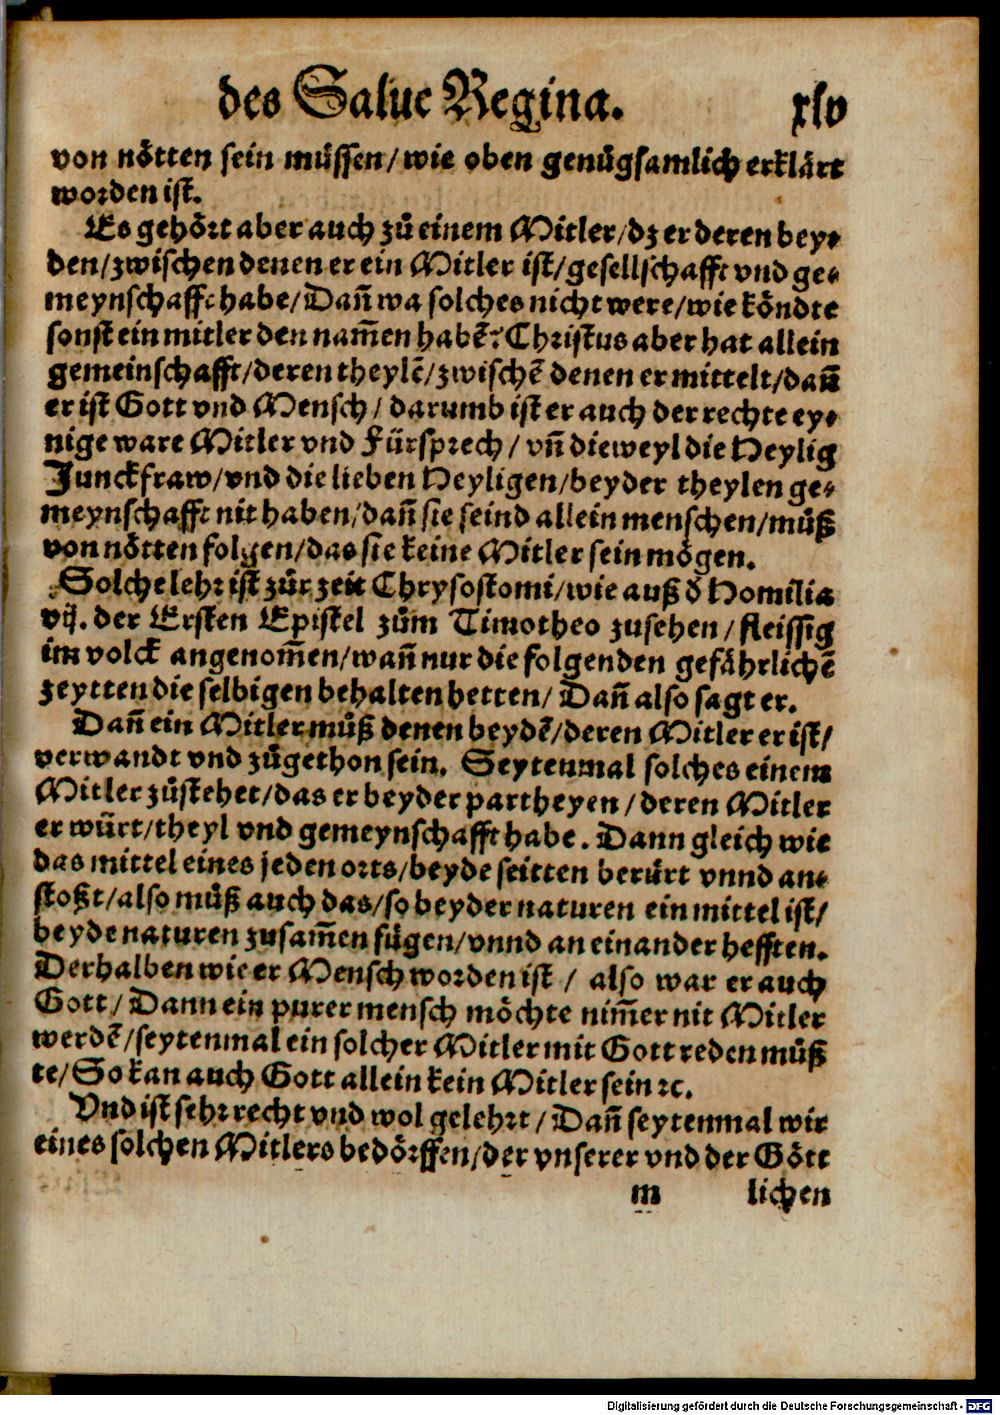 des Salue Regina. xlv
von nötten sein müssen/wie oben genůgsamlich erklärt
worden ist.
Es gehört aber auch zů einem Mitler/dz er deren bey-
den/zwischen denen er ein Mitler ist/gesellschafft vnd ge-
meynschafft habe/Dañ wa solches nicht were/wie köndte
sonst ein mitler den nam̃en habẽ? Christus aber hat allein
gemeinschafft/deren theylẽ/zwischẽ denen er mittelt/dañ
er ist Gott vnd Mensch/ darumb ist er auch der rechte ey-
nige ware Mitler vnd Fürsprech/ vñ dieweyl die Heylig
Junckfraw/vnd die lieben Heyligen/beyder theylen ge-
meynschafft nit haben/dañ sie seind allein menschen/můß
von nötten folgen/das sie keine Mitler sein mögen.
Solche lehr ist zůr zeit Chrysostomi/wie auß d̃ Homilia
vij. der Ersten Epistel zům Timotheo zusehen/fleissig
im volck angenom̃en/wañ nur die folgenden gefährlichẽ
zeytten die selbigen behalten hetten/ Dañ also sagt er.
Dañ ein Mitler můß denen beydẽ/deren Mitler er ist/
verwandt vnd zůgethon sein. Seytenmal solches einem
Mitler zůstehet/das er beyder partheyen/deren Mitler
er würt/theyl vnd gemeynschafft habe. Dann gleich wie
das mittel eines jeden orts/beyde seitten berürt vnnd an-
stoßt/also můß auch das/so beyder naturen ein mittel ist/
beyde naturen zusam̃en fügen/vnnd an einander hefften.
Derhalben wie er Mensch worden ist/ also war er auch
Gott/Dann ein purer mensch möchte nim̃er nit Mitler
werdẽ/seytenmal ein solcher Mitler mit Gott reden můß
te/So kan auch Gott allein kein Mitler sein ꝛc.
Vnd ist sehr recht vnd wol gelehrt/Dañ seytenmal wir
eines solchen Mitlers bedörffen/der vnserer vnd der Gött
m lichen
Digitalisierung gefördert durch die Deutsche Forschungsgemeinschaft - DFG